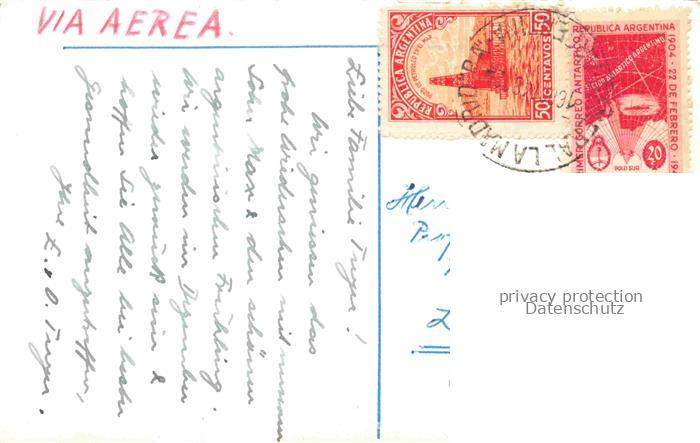 VIA AEREA.
Liebe Familie Tueger!
Wir geniessen das
frohe Wiedersehen mit unserem
Sohn Max & den schönen
argentinischen Frühling.
Wir werden im Dezember
wieder zurück sein &
hoffen Sie Alle bei bester
Gesundheit anzutreffen,
Ihre E. & O. Tueger.
REPUBLICA ARGENTINA
POZO DE PETROLEO EN EL MAR
50 CENTAVOS 50
REPUBLICA ARGENTINA
1904 - 22 DE FEBRERO - 19
PRIMER CORREO ANTARTICO
SECTOR ANTARTICO ARGENTINO
20
POLO SUR
LAMADRID
Herr
privacy protection
Datenschutz